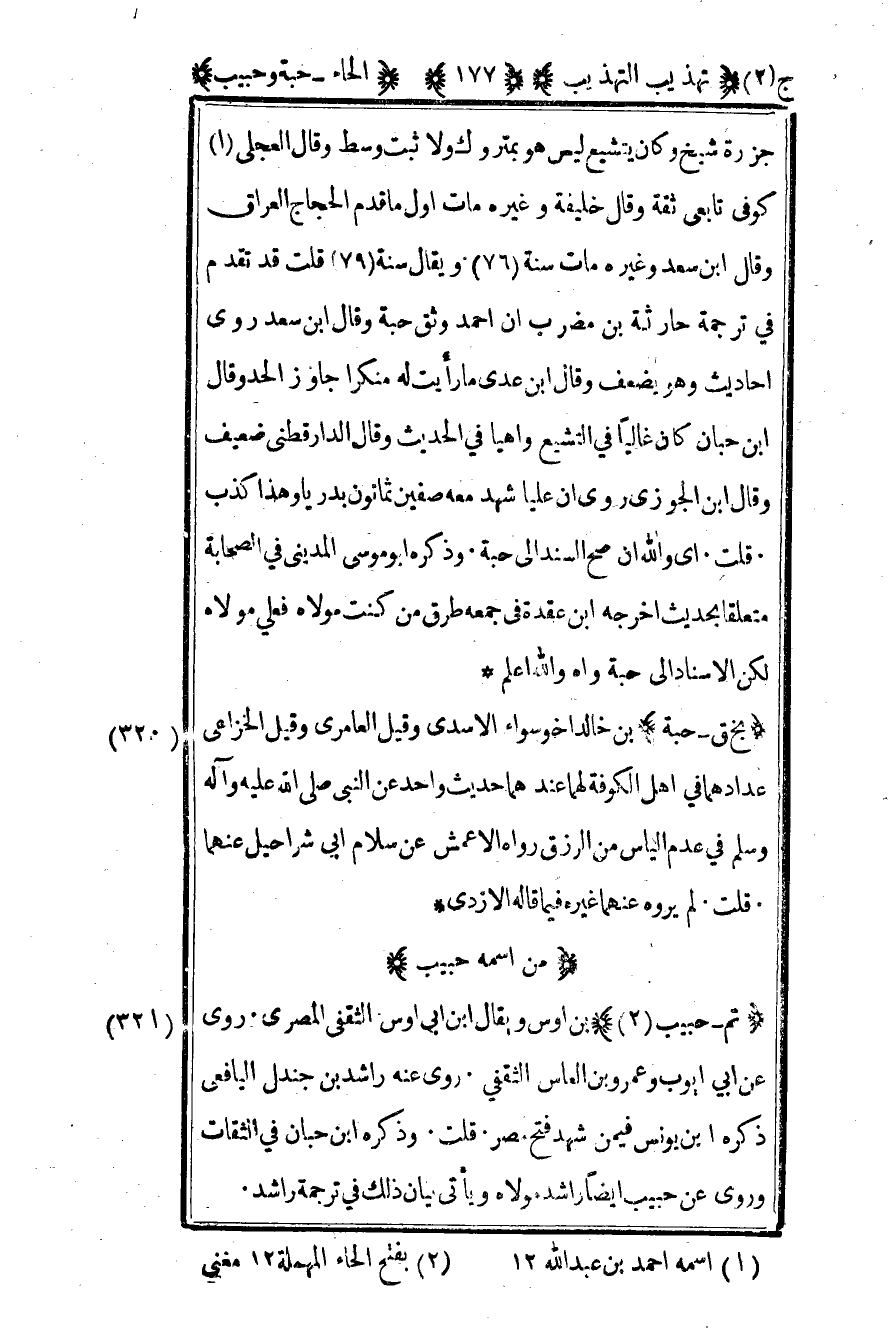 ج(٢) ﴿ تهذيب التهذيب ﴾ ﴿ ١٧٧ ﴾ ﴿ الحاء ـ حبة وحبيب ﴾
جزرة شيخ وكان يتشيع ليس هو بمتروك ولا ثبت وسط وقال العجلى (١)
كوفى تابعى ثقة وقال خليفة وغيره مات اول ما قدم الحجاج العراق
وقال ابن سعد وغيره مات سنة (٧٦) ويقال سنة (٧٩) قلت قد تقدم
في ترجمة حارثة بن مضرب ان احمد وثق حبة وقال ابن سعد روى
احاديث وهو يضعف وقال ابن عدى ما رأيت له منكرا جاوز الحد وقال
ابن حبان كان غالياً في التشيع واهيا في الحديث وقال الدارقطنى ضعيف
وقال ابن الجوزى روى ان عليا شهد معه صفين ثمانون بدريا وهذا كذب
٠ قلت ٠ اى والله ان صح السند الى حبة ٠ وذكره ابو موسى المدينى في الصحابة
متعلقا بحديث اخرجه ابن عقدة فى جمعه طرق من كنت مولاه فعلي مولاه
لكن الاسناد الى حبة واه والله اعلم *
﴿ بخ ق ـ حبة ﴾ بن خالد اخو سواء الاسدى وقيل العامرى وقيل الخزاعى (٣٢٠)
عدادهما في اهل الكوفة لهما عندهما حديث واحد عن النبى صلى الله عليه وآله
وسلم في عدم الياس من الرزق رواه الاعمش عن سلام ابي شراحيل عنهما
٠ قلت ٠ لم يروه عنهما غيره فيما قاله الازدى *
﴿ من اسمه حبيب ﴾
﴿ تم ـ حبيب (٢) ﴾ بن اوس ويقال ابن ابى اوس الثقفى المصرى ٠ روى (٣٢١)
عن ابي ايوب وعمرو بن العاس الثقفي ٠ روى عنه راشد بن جندل اليافعى
ذكره ابن يونس فيمن شهد فتح مصر ٠ قلت ٠ وذكره ابن حبان في الثقات
وروى عن حبيب ايضاً راشد مولاه ويأتى بيان ذلك في ترجمة راشد ٠
(١) اسمه احمد بن عبدالله ١٢ (٢) بفتح الحاء المهملة ١٢ مغني